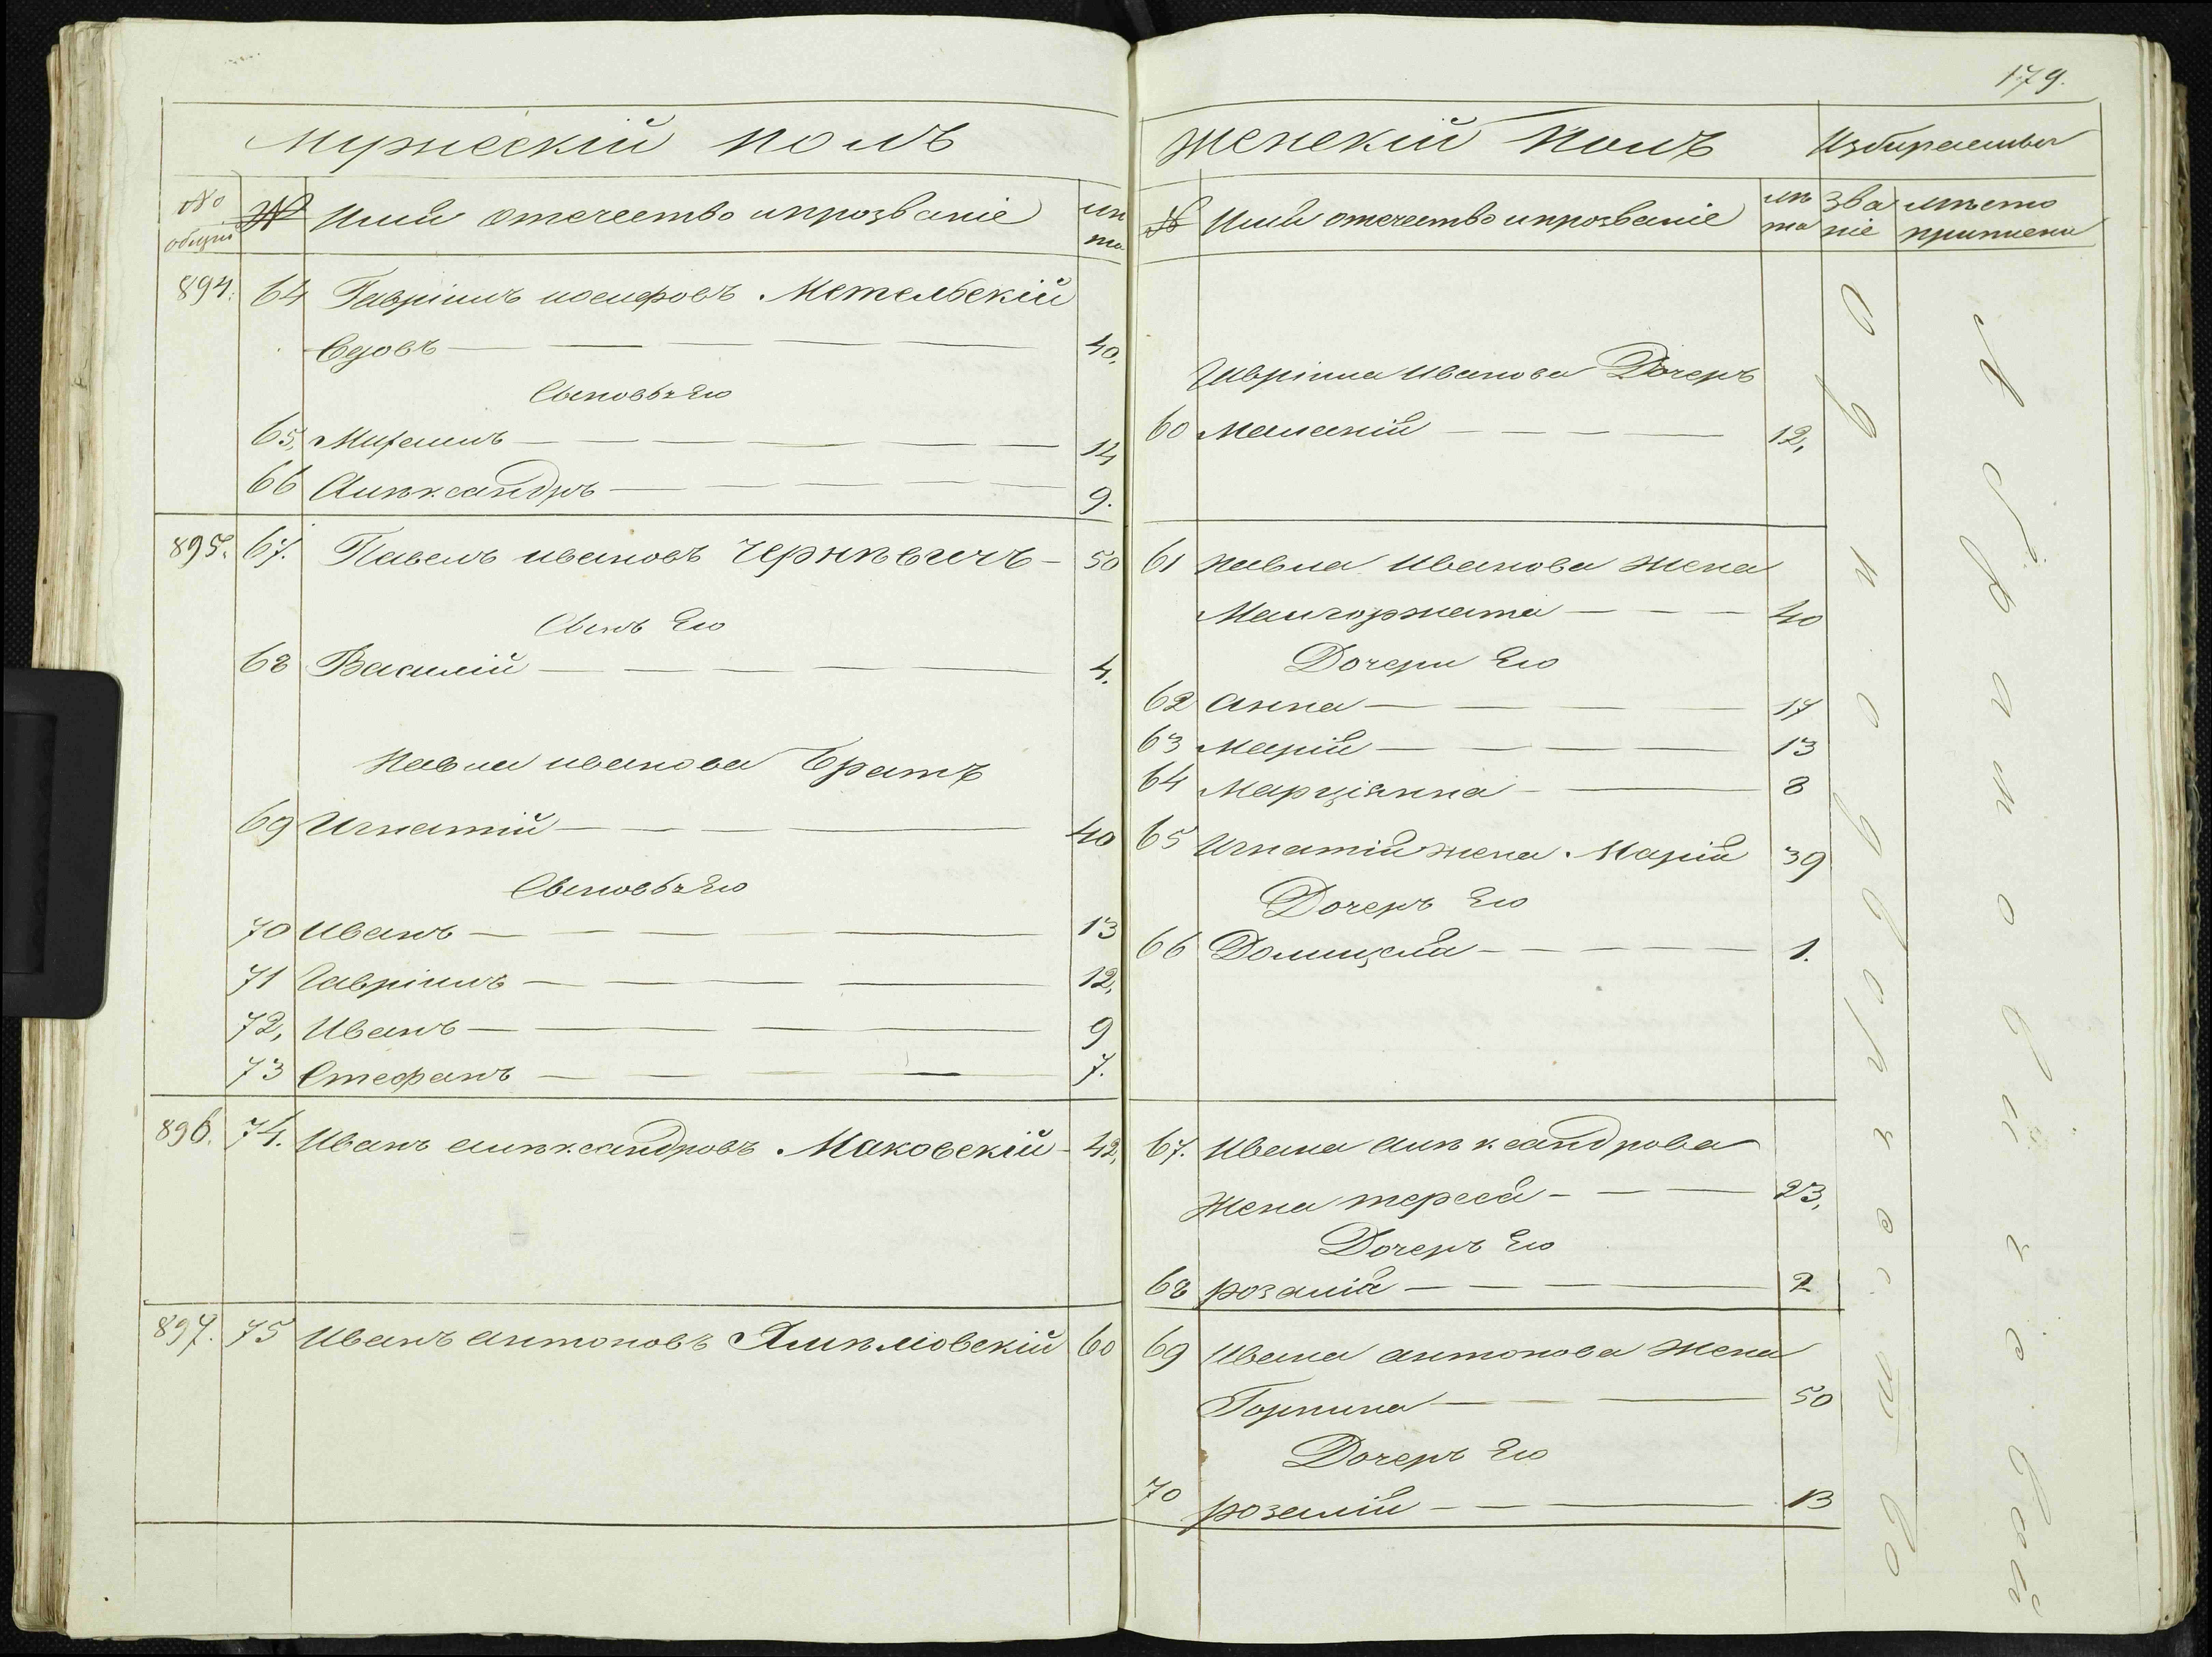 179.
Мужескій полъ
№ общій № Имя отечество и прозваніе лѣ та
894. 64 Гавріилъ иосифовъ Метельскій
Вдовъ — — — — — 40.
Сыновья Его
65, Михаилъ — — — — — 14
66 Алѣксандръ — — — — — 9.
895. 67. Павелъ ивановъ Чернѣвичъ — 50
Сынъ Его
68 Василій — — — — — 4.
Павла иванова Братъ
69 Игнатій — — — — — 40
Сыновья Его
70 Иванъ — — — — — 13
71 Гавріилъ — — — — — 12,
72, Иванъ — — — — — 9
73 Стефанъ — — — — — 7.
896. 74. Иванъ алѣксандровъ Маковскій — 42,
897. 75 Иванъ антоновъ 60
Женскій Полъ Избираемыя
№ Имя отечество и прозваніе лѣ та Зва ніе мѣсто приписки
Гавріила Иванова Дочерь
60 Маланія — — — — 12,
61 Павла Иванова Жена
Малгоржата — — — 40
Дочери Его
62 Анна — — — — 17
63 Марія — — — — 13
64 Марціянна — — 8
65 Игнатія жена Марія 39
Дочерь Его
66 Домицеля — — — — 1.
67. Ивана Алѣксандрова
Жена тереса — — — 23,
Дочерь Его
68 розалія — — — — 2
69 Ивана антонова Жена
Горпина — — — 50
Дочерь Его
70 розалія — — — 13